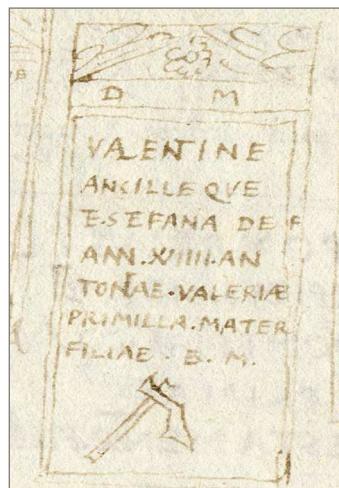 D M
VALENTINE
ANCILLE QVE
ET STEFANA DE F
ANN. XVIIII. AN
TONIAE. VALERIÆ
PRIMILLA. MATER
FILIAE. B. M.